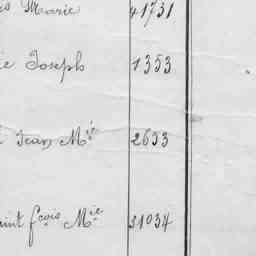 Marie 41731
Joseph 1353
Jean Mie 2653
aint fcois Mie 31034